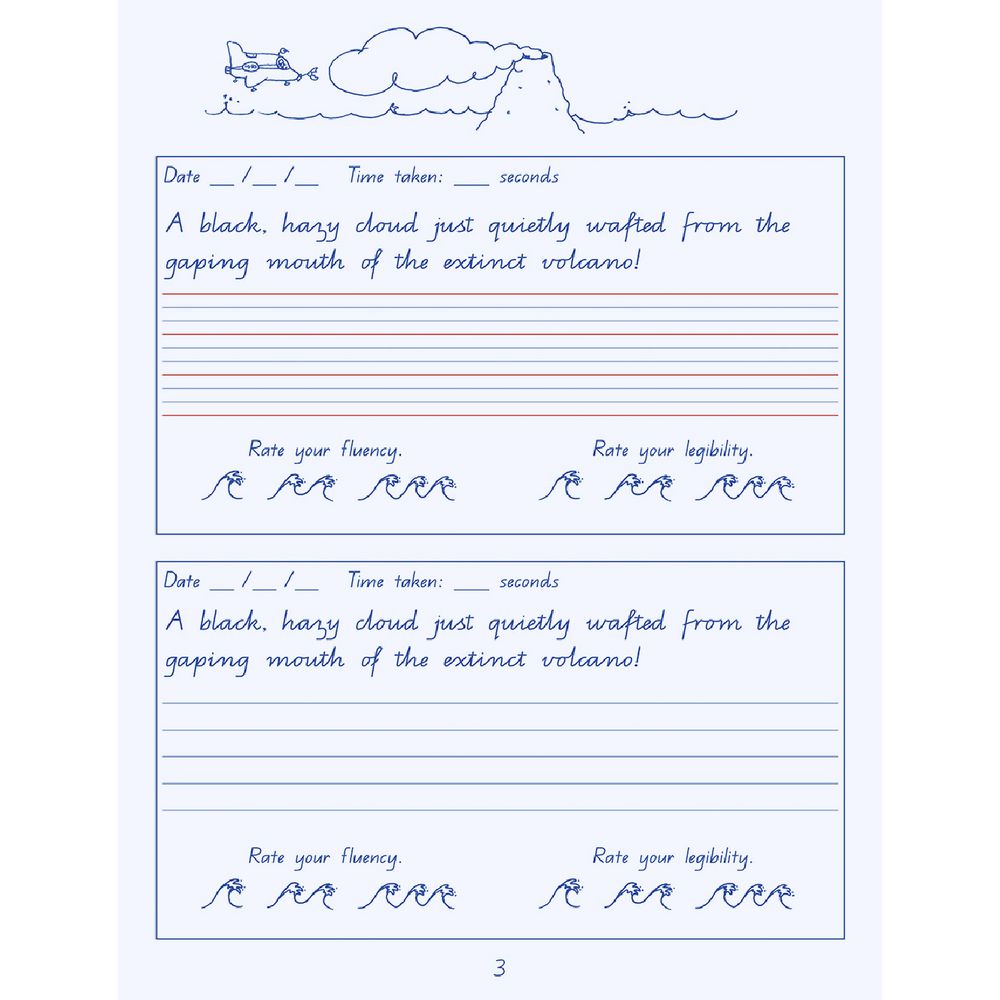 Date __ /__ /__ Time taken: ___ seconds
A black, hazy cloud just quietly wafted from the
gaping mouth of the extinct volcano!
Rate your fluency. Rate your legibility.
Date __ /__ /__ Time taken: ___ seconds
A black, hazy cloud just quietly wafted from the
gaping mouth of the extinct volcano!
Rate your fluency. Rate your legibility.
3